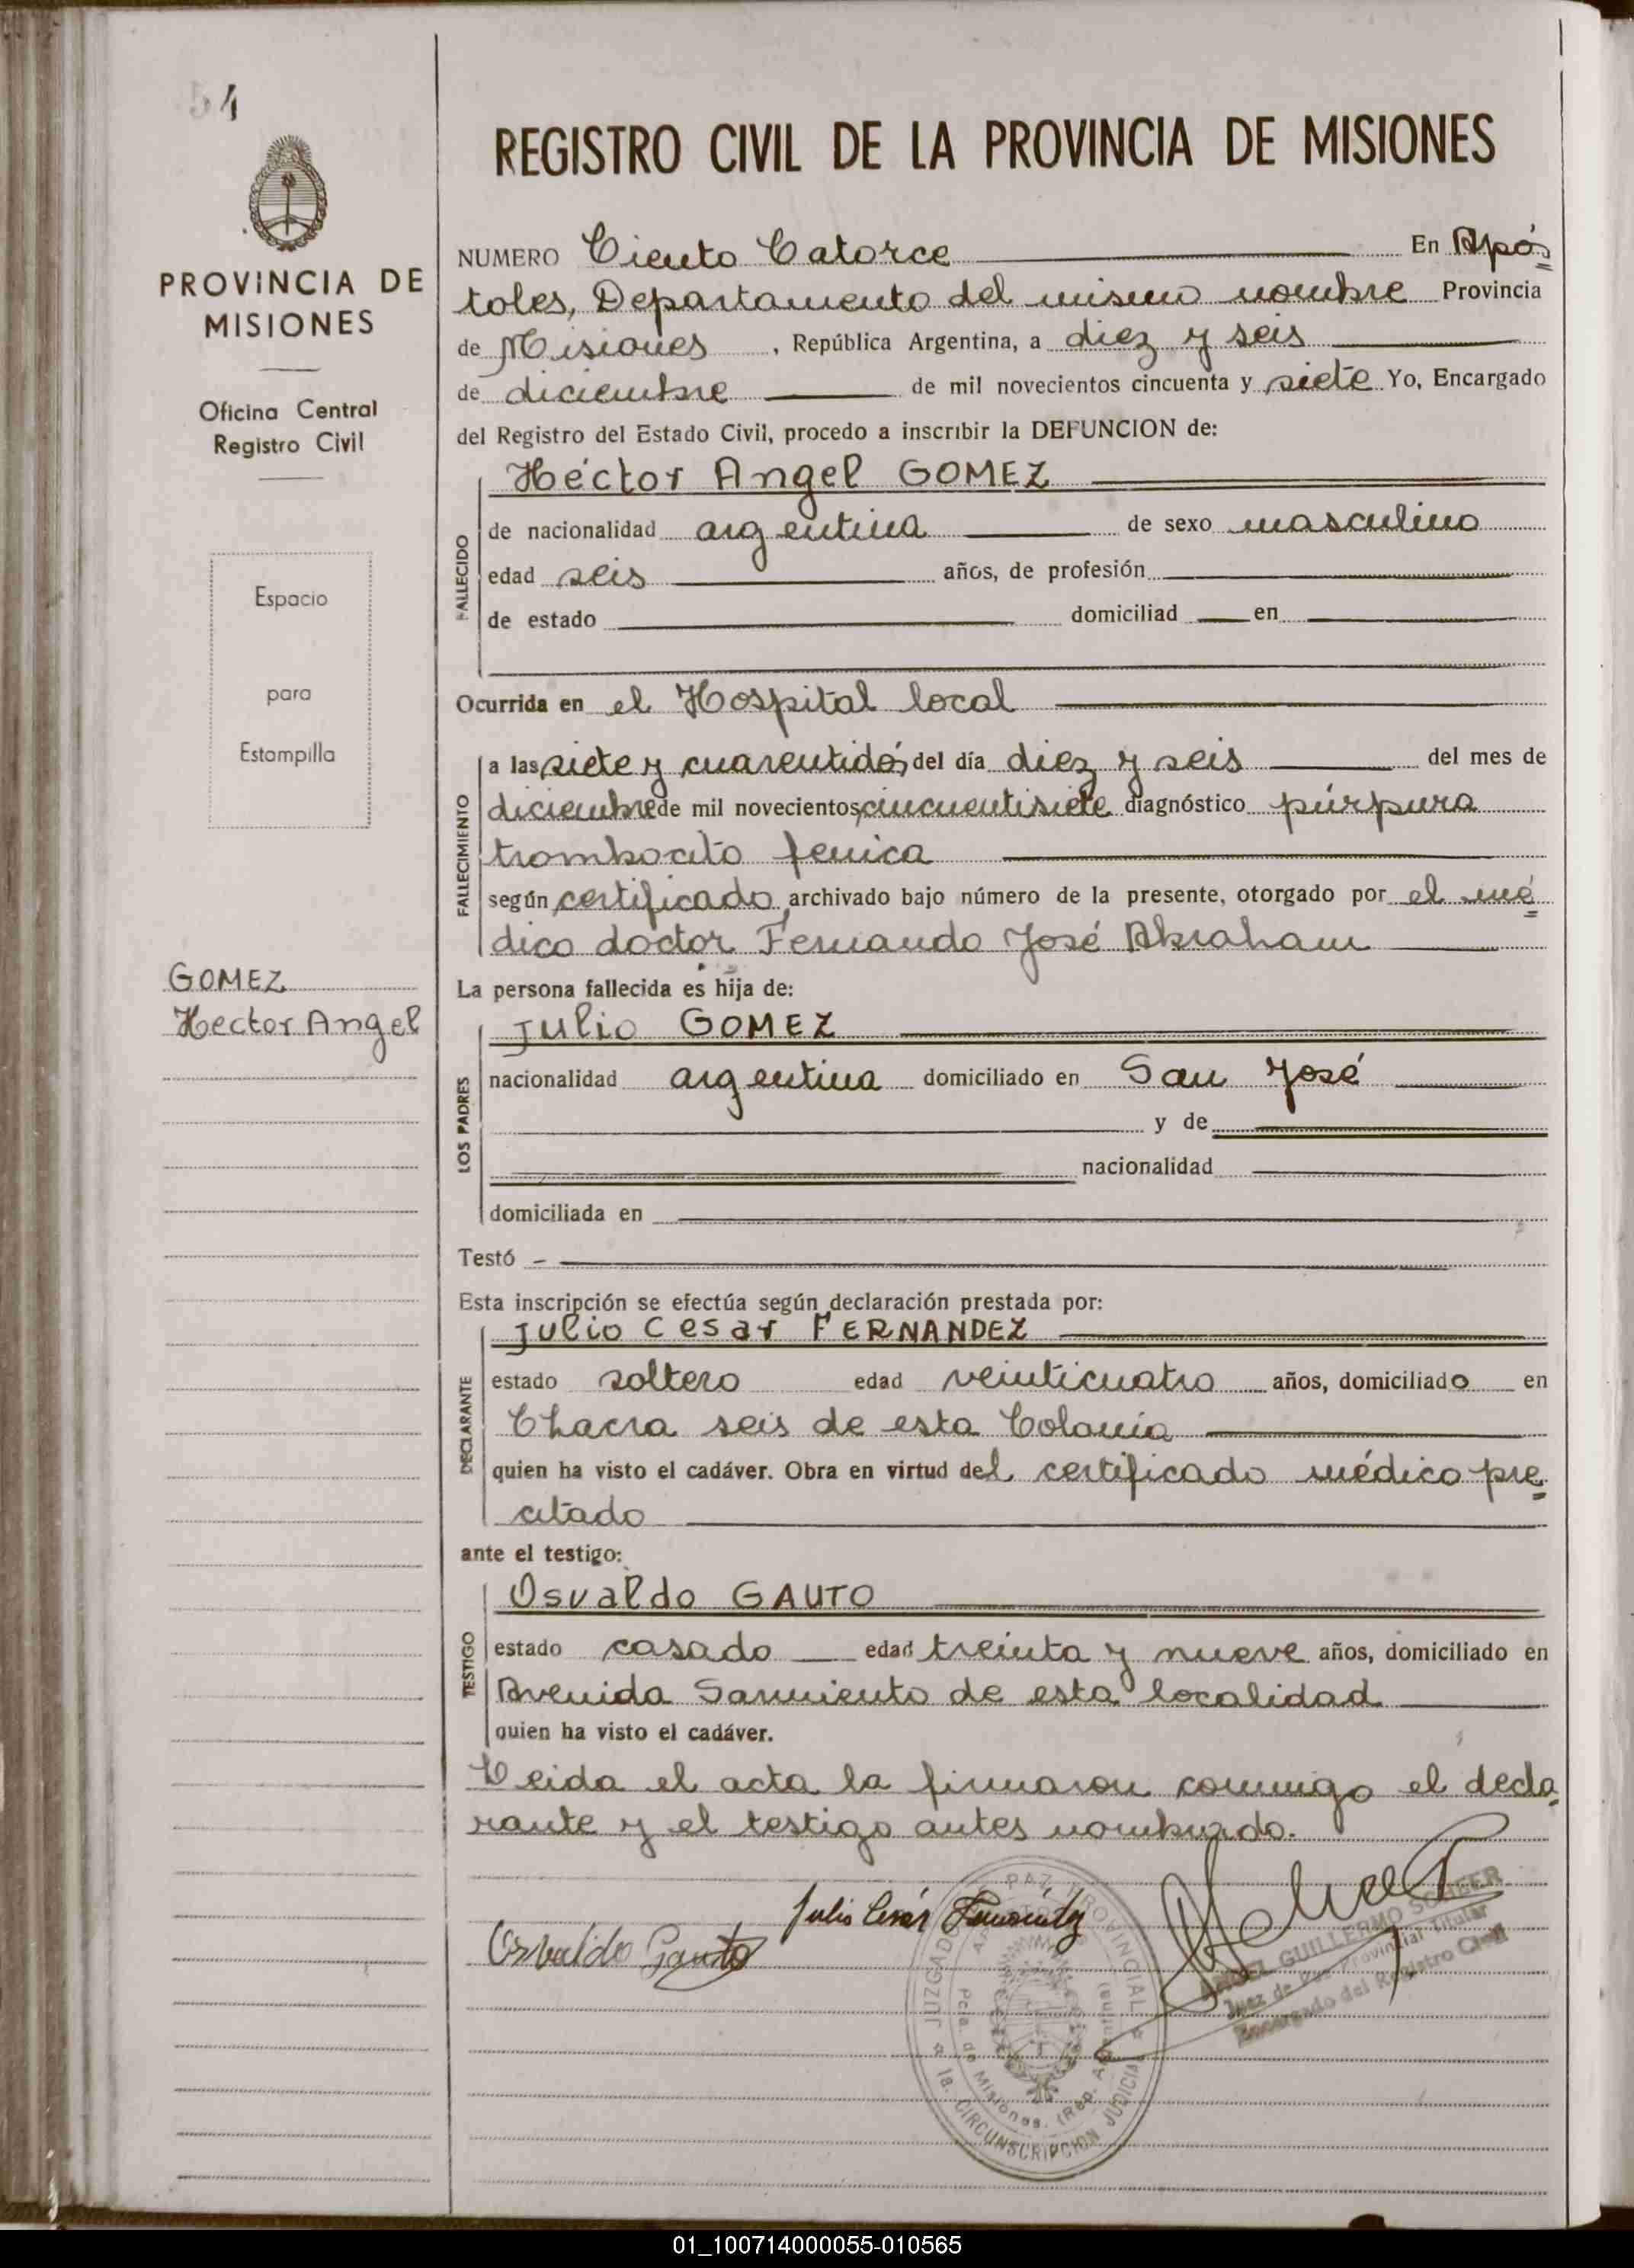 54
PROVINCIA DE
MISIONES
Oficina Central
Registro Civil
Espacio
para
Estampilla
GOMEZ
Hector Angel
REGISTRO CIVIL DE LA PROVINCIA DE MISIONES
NUMERO Ciento Catorce En Após
toles, Departamento del mismo nombre Provincia
de Misiones, República Argentina, a diez y seis
de diciembre de mil novecientos cincuenta y siete Yo, Encargado
del Registro del Estado Civil, procedo a inscribir la DEFUNCION de:
Héctor Angel GOMEZ
FALLECIDO
de nacionalidad argentina de sexo masculino
edad seis años, de profesión
de estado domiciliad en
Ocurrida en el Hospital local
FALLECIMIENTO
a las siete y cuarentidós del día diez y seis del mes de
diciembre de mil novecientos cincuentisiete diagnóstico púrpura
trombocito fenica
según certificado, archivado bajo número de la presente, otorgado por el mé
dico doctor Fernando José Abraham
La persona fallecida es hija de:
Julio GOMEZ
LOS PADRES
nacionalidad argentina domiciliado en San José
y de
nacionalidad
domiciliada en
Testó
Esta inscripción se efectúa según declaración prestada por:
Julio Cesar FERNANDEZ
DECLARANTE
estado soltero edad veinticuatro años, domiciliado en
Chacra seis de esta Colonia
quien ha visto el cadáver. Obra en virtud del certificado médico pre
citado
ante el testigo:
Osvaldo GAUTO
TESTIGO
estado casado edad treinta y nueve años, domiciliado en
Avenida Sarmiento de esta localidad
quien ha visto el cadáver.
Leida el acta la firmaron conmigo el decla
rante y el testigo antes nombrado.
Julio César Fernández
Osvaldo Gauto
JUZGADO PAZ PROVINCIAL
1a. CIRCUNSCRIPCION JUDICIAL
Pcia. de Misiones. (Rep. Argentina)
GUILLERMO
Juez de Paz Provincial Titular
Encargado del Registro Civil
01_100714000055-010565